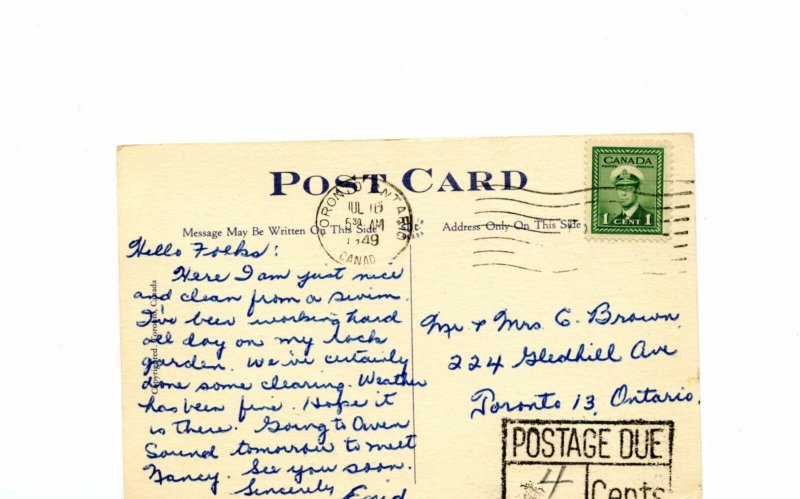 POST CARD
CANADA
1 CENT 1
TORONTO ONTARIO
JUL 16
5 30 AM
1949
CANADA
Message May Be Written On This Side
Address Only On This Side
Hello Folks:
Here I am just nice
and clean from a swim.
I've been working hard
all day on my rock
garden. We've certainly
done some clearing. Weather
has been fine. Hope it
is there. Going to Owen
Sound tomorrow to meet
Nancy. See you soon.
Sincerely
Enid
Copyrighted, Toronto, Canada
Mr & Mrs C. Brown,
224 Gledhill Ave
Toronto 13, Ontario.
POSTAGE DUE
4 Cents